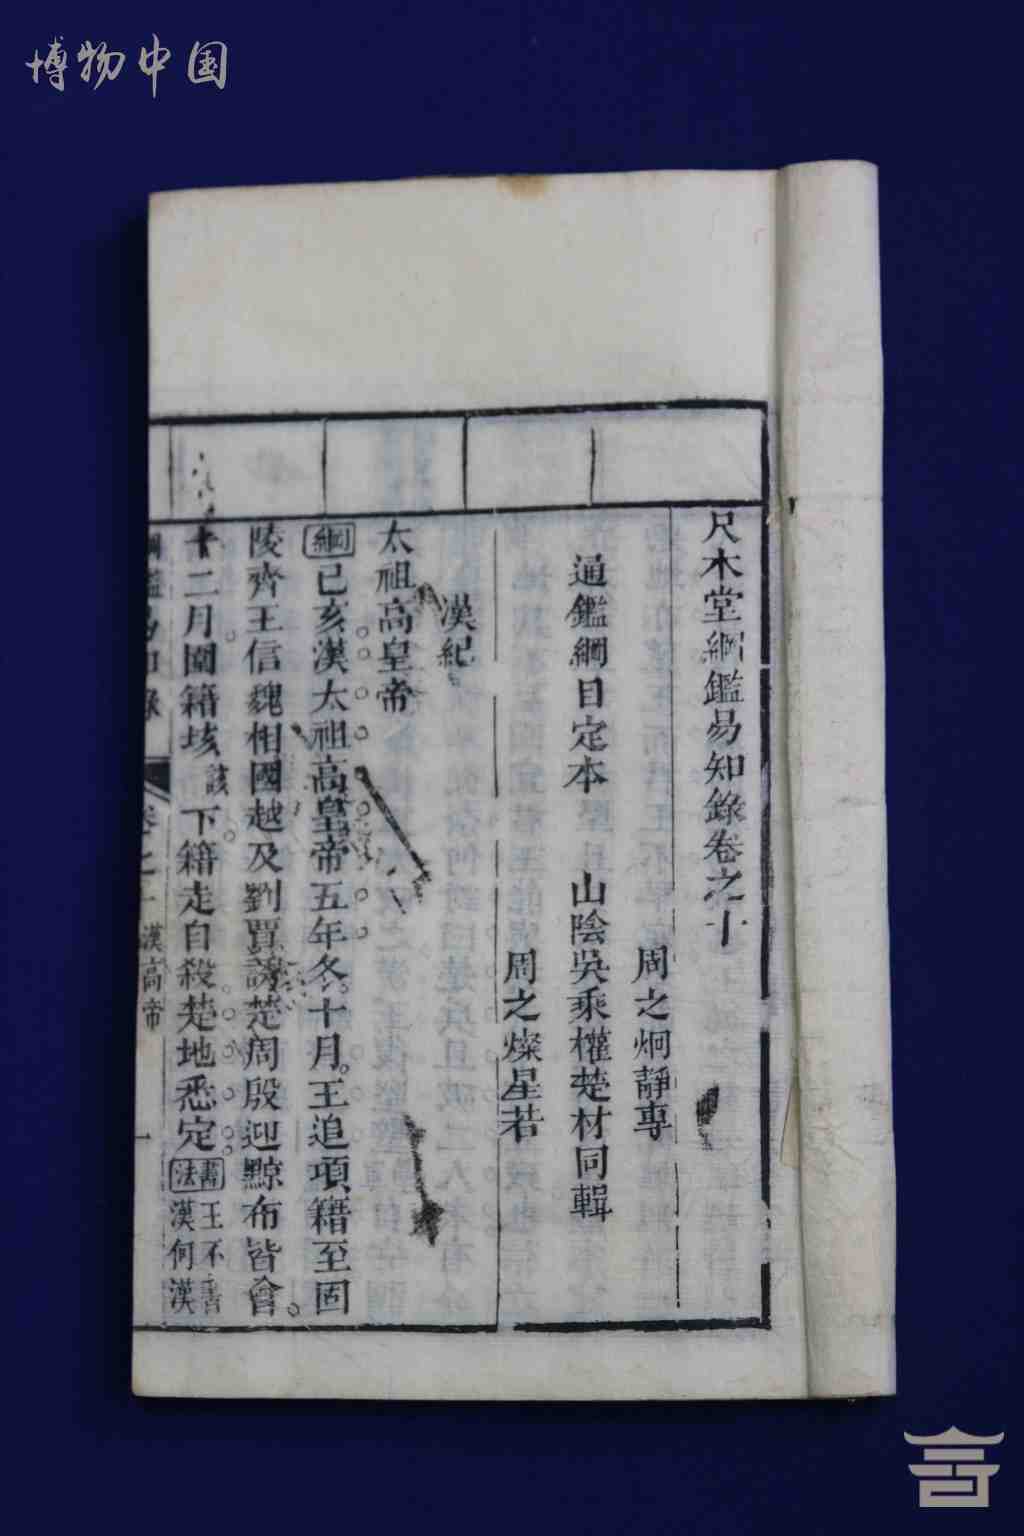 博物中国
尺木堂綱鑑易知錄卷之十
周之炯靜專
通鑑綱目定本 山陰吳乘權楚材同輯
周之燦星若
漢紀
太祖高皇帝
綱己亥漢太祖高皇帝五年冬十月王追項籍至固
陵齊王信魏相國越及劉賈誘楚周殷迎黥布皆會
十二月圍籍垓該下籍走自殺楚地悉定書法王不書漢何漢
漢高帝